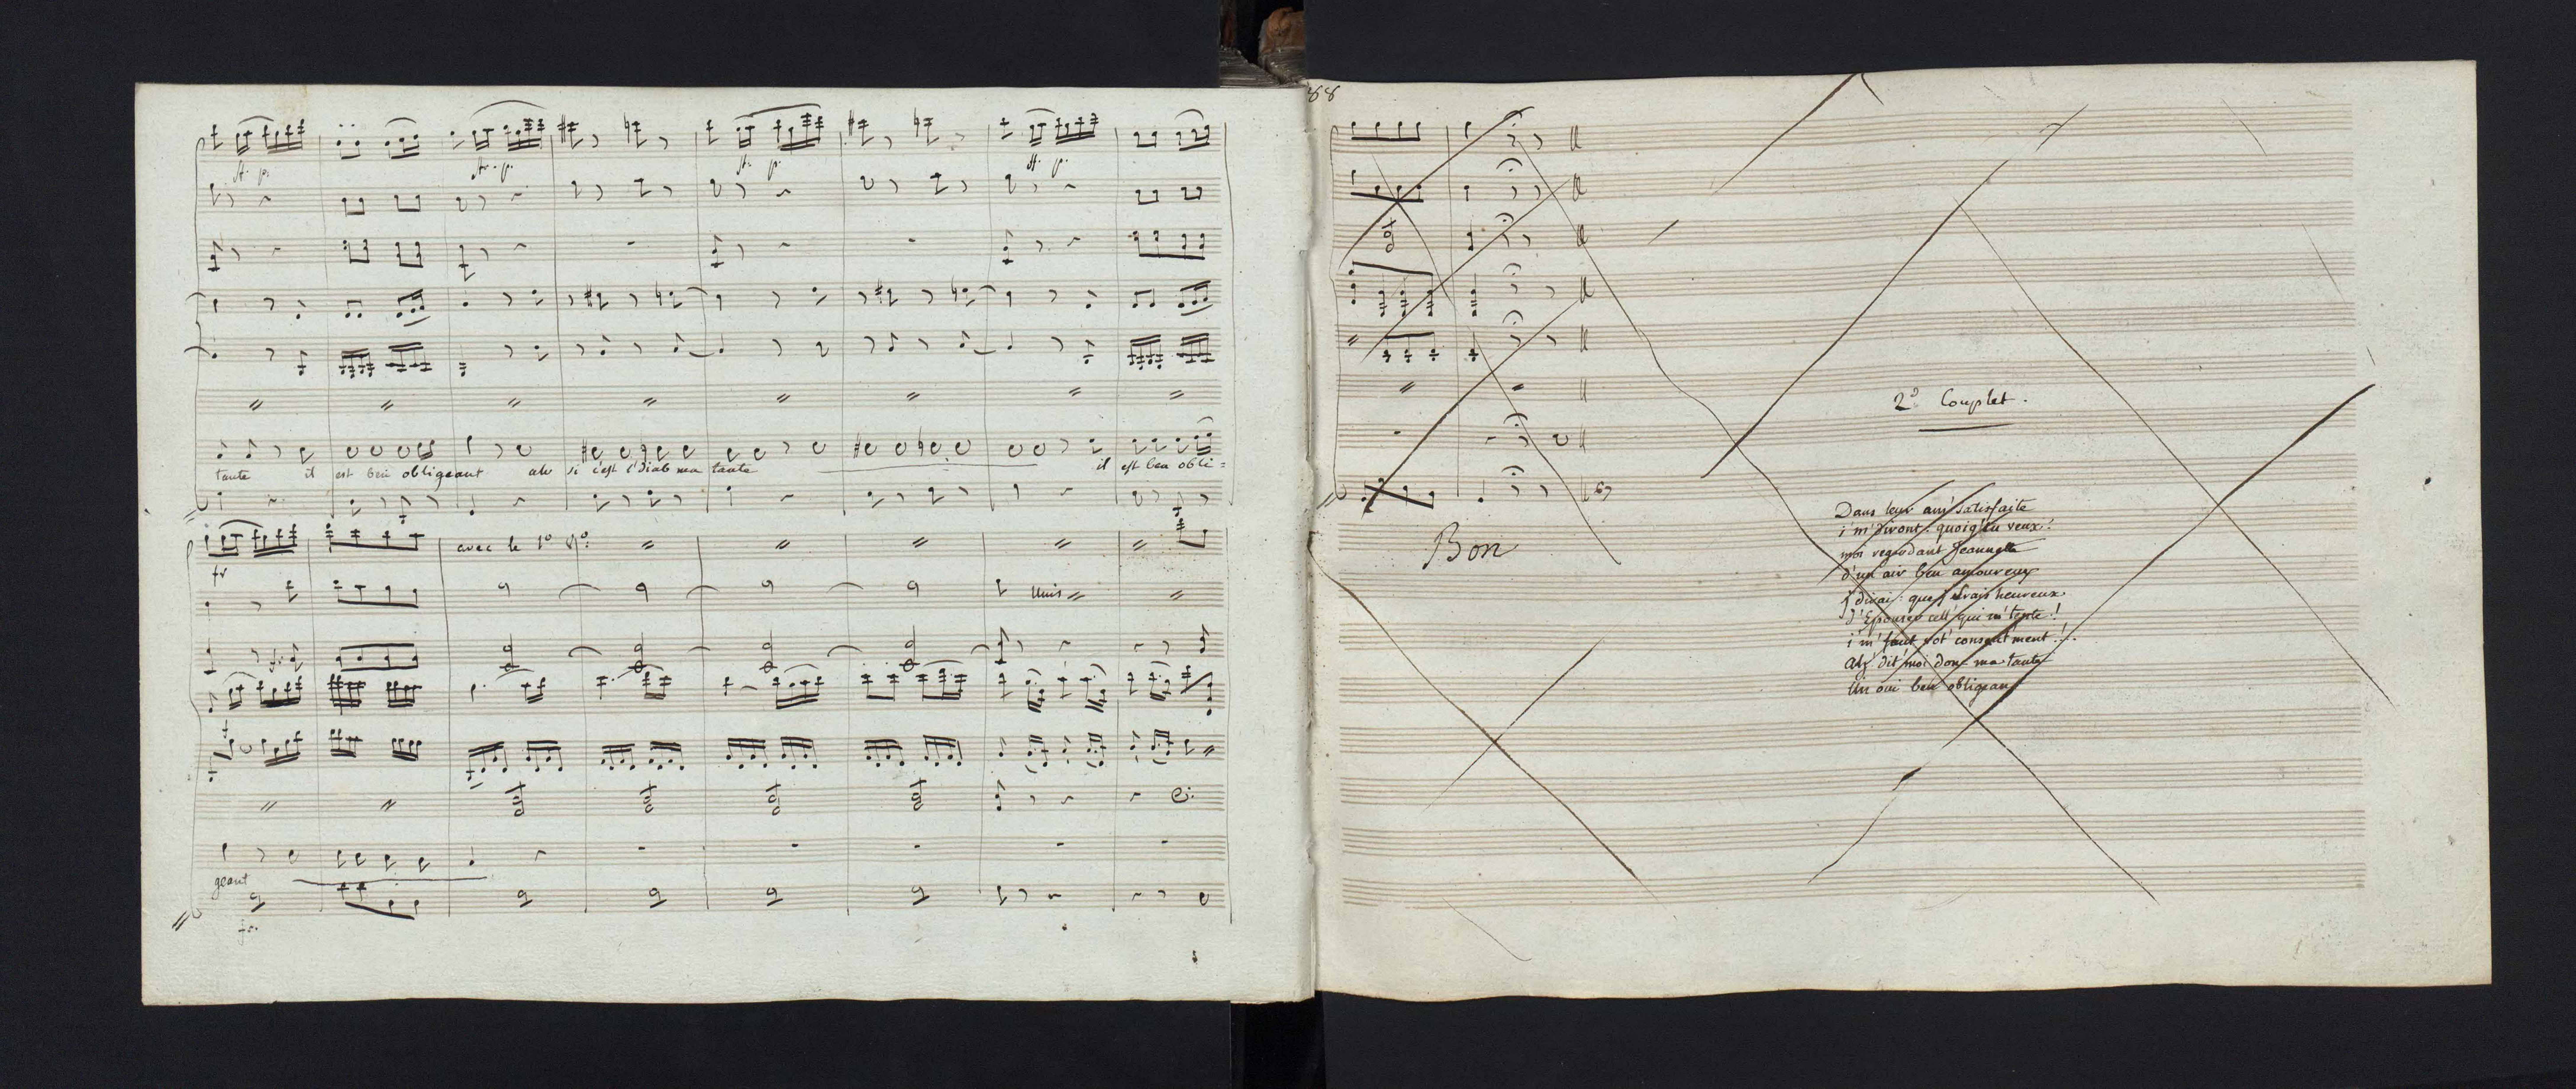 tante il est ben obligeant ah si c'est l'diab ma tante il est ben obli=
avec le 1º Vº:
fr
Unis
geant
88
2º Couplet.
Bon
Dans leur am' satisfaite
i m' diront: quoiq' tu veux?
moi regardant Jeannette
d'un air ben amoureux
j' dirai: que j' s'rais heureux
d'Epouser cell' qui m' tente!
i m' faut vot' consent'ment!..
Ah! dit' moi don ma tante
Un oui ben obligeant